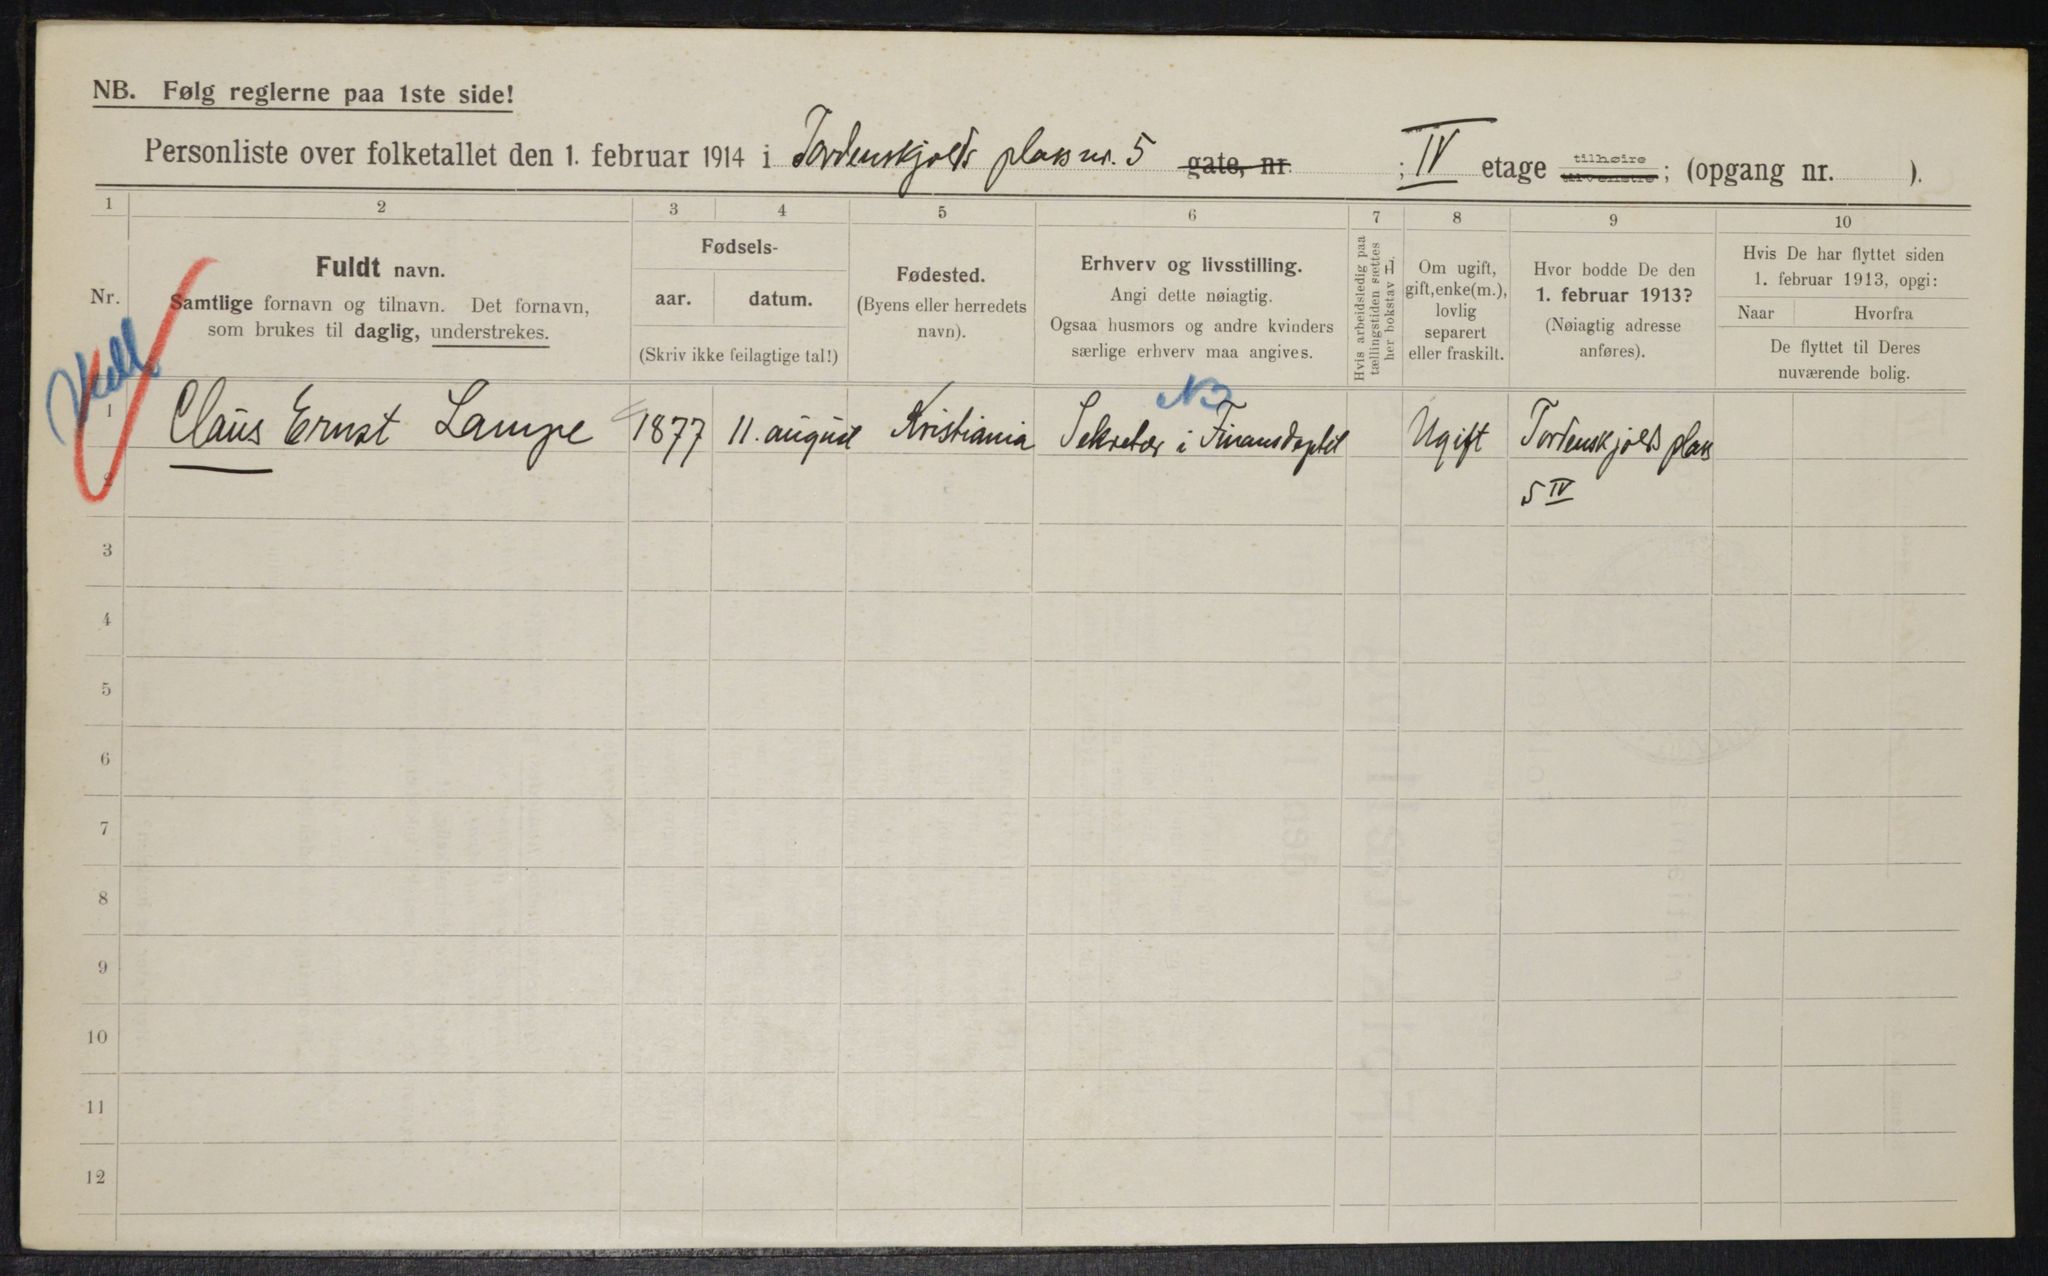 NB. Følg reglerne paa 1ste side!
Personliste over folketallet den 1. februar 1914 i Tordenskjolds plass nr. 5 gate, nr. ; IV etage tilhøire tilvenstre; (opgang nr. ).
1 2 3 4 5 6 7 8 9 10
Nr.
Fuldt navn.
Samtlige fornavn og tilnavn. Det fornavn,
som brukes til daglig, understrekes.
Fødsels-
aar. datum.
(Skriv ikke feilagtige tal!)
Fødested.
(Byens eller herredets
navn).
Erhverv og livsstilling.
Angi dette nøiagtig.
Ogsaa husmors og andre kvinders
særlige erhverv maa angives.
Hvis arbeidsledig paa
tællingstiden sættes
her bokstav L.
Om ugift,
gift, enke(m.),
lovlig
separert
eller fraskilt.
Hvor bodde De den
1. februar 1913?
(Nøiagtig adresse
anføres).
Hvis De har flyttet siden
1. februar 1913, opgi:
Naar Hvorfra
De flyttet til Deres
nuværende bolig.
NB
1 Claus Ernst Lampe 1877 11. august Kristiania Sekretær i Finansdeptet Ugift Tordenskjolds plass
2 5 IV
3
4
5
6
7
8
9
10
11
12